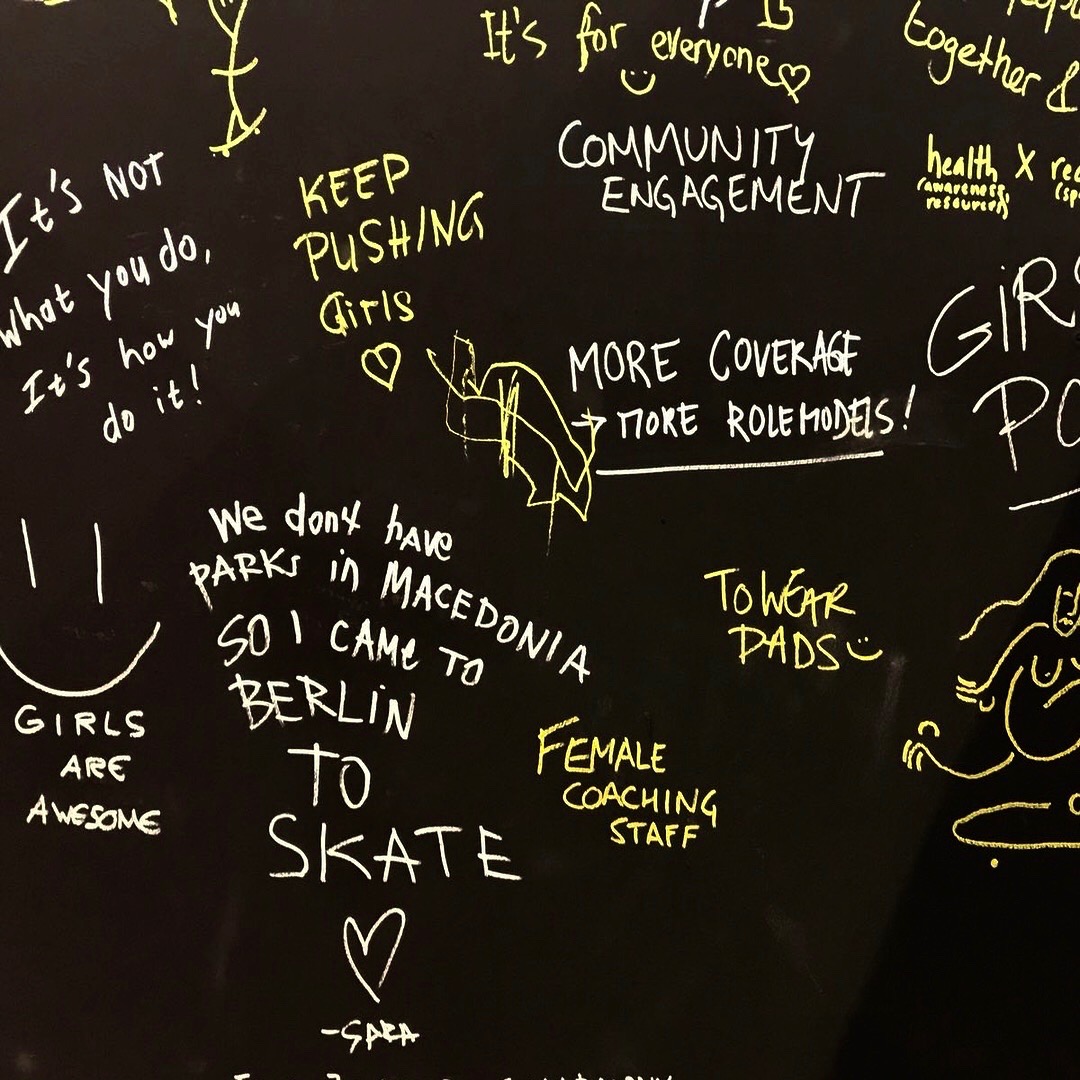 It's for everyone
together &
COMMUNITY
ENGAGEMENT
health X
(awareness,
resources)
It's NOT
what you do,
It's how you
do it!
KEEP
PUSHING
Girls
MORE COVERAGE
→ MORE ROLEMODELS!
We dont have
PARKS in MACEDONIA
SO I CAME TO
BERLIN
TO
SKATE
-SARA
TO WEAR
PADS
GIRLS
ARE
AWESOME
FEMALE
COACHING
STAFF